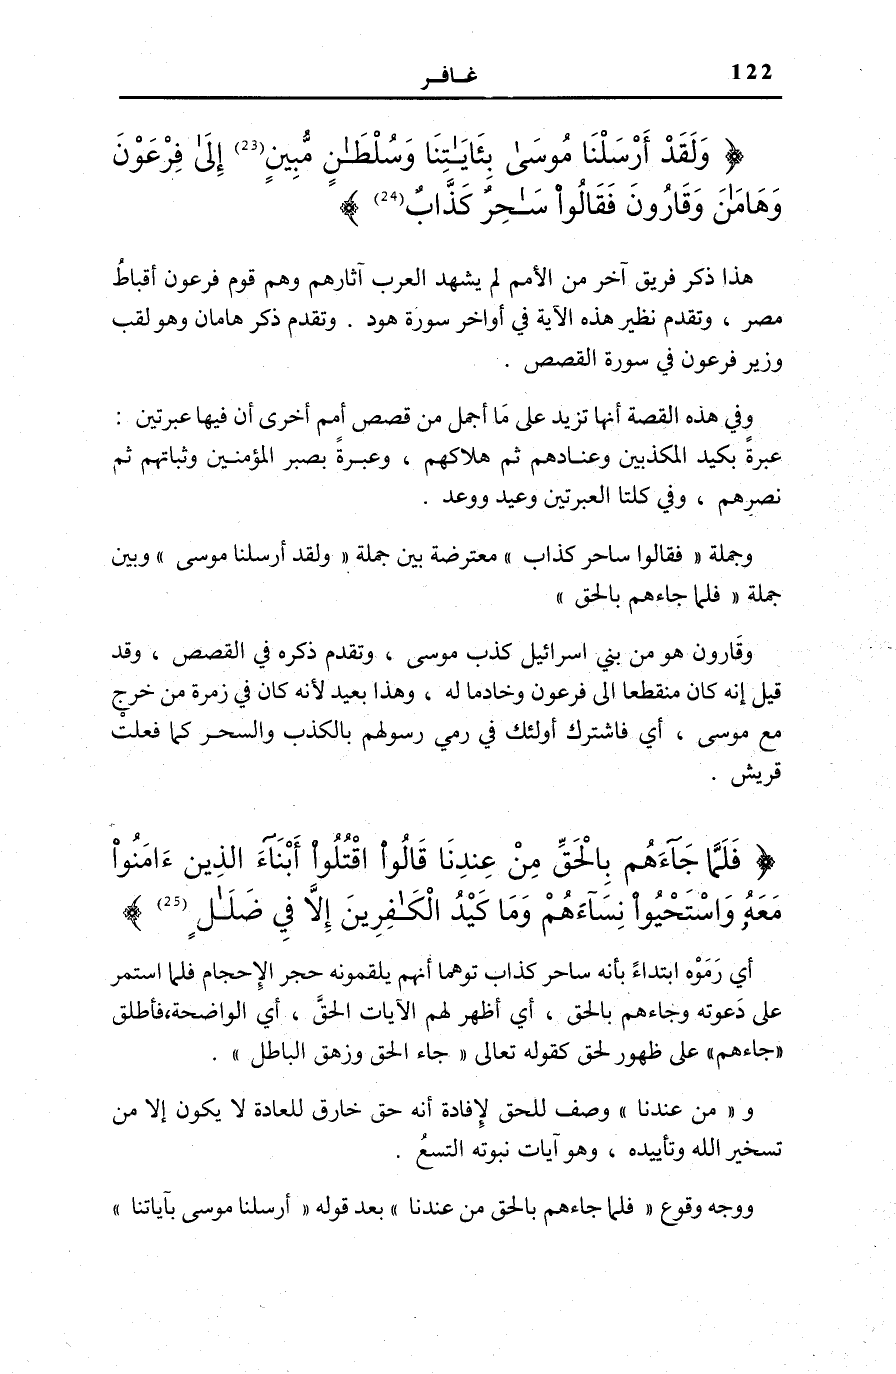 122
غـافـر
﴿ وَلَقَدْ أَرْسَلْنَا مُوسَىٰ بِـَٔايَـٰتِنَا وَسُلْطَـٰنٍ مُّبِينٍ (23) إِلَىٰ فِرْعَوْنَ
وَهَامَـٰنَ وَقَارُونَ فَقَالُواْ سَـٰحِرٌ كَذَّابٌ (24) ﴾
هذا ذكر فريق آخر من الأمم لم يشهد العرب آثارهم وهم قوم فرعون أقباطُ
مصر ، وتقدم نظير هذه الآية في أواخر سورة هود . وتقدم ذكر هامان وهو لقب
وزير فرعون في سورة القصص .
وفي هذه القصة أنها تزيد على مَا أجمل من قصص أمم أخرى أن فيها عبرتين :
عبرةً بكيد المكذبين وعنـادهم ثم هلاكهم ، وعبـرةً بصبر المؤمنـين وثباتهم ثم
نصرهم ، وفي كلتا العبرتين وعيد ووعد .
وجملة « فقالوا ساحر كذاب » معترضة بين جملة « ولقد أرسلنا موسى » وبين
جملة « فلما جاءهم بالحق »
وقَارون هو من بني اسرائيل كذب موسى ، وتقدم ذكره في القصص ، وقد
قيل إنه كان منقطعا الى فرعون وخادما له ، وهذا بعيد لأنه كان في زمرة من خرج
مع موسى ، أي فاشترك أولئك في رمي رسولهم بالكذب والسحـر كما فعلتْ
قريش .
﴿ فَلَمَّا جَآءَهُم بِالْحَقِّ مِنْ عِندِنَا قَالُواْ اقْتُلُواْ أَبْنَآءَ الذِين ءَامَنُواْ
مَعَهُۥ وَاسْتَحْيُواْ نِسَآءَهُمْ وَمَا كَيْدُ الْكَـٰفِرِينَ إِلَّا فِي ضَلَـٰلٍ (25) ﴾
أي رَمَوْه ابتداءً بأنه ساحر كذاب توهما أنهم يلقمونه حجر الإحجام فلما استمر
على دَعوته وجاءهم بالحق ، أي أظهر لهم الآيات الحقَّ ، أي الواضحة،فأطلق
«جاءهم» على ظهور لحق كقوله تعالى « جاء الحق وزهق الباطل » .
و « من عندنا » وصف للحق لإفادة أنه حق خارق للعادة لا يكون إلا من
تسخير الله وتأييده ، وهو آيات نبوته التسعُ .
ووجه وقوع « فلما جاءهم بالحق من عندنا » بعد قوله « أرسلنا موسى بآياتنا »